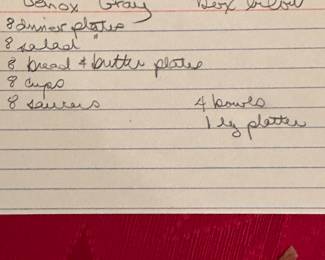 Lenox Gray Box below
8 dinner plates
8 salad "
8 bread & butter plates
8 cups
8 saucers 4 bowls
1 lg platter